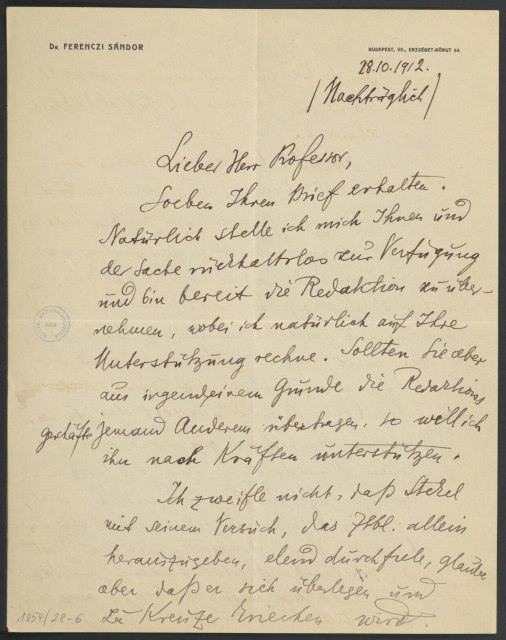 Dr. FERENCZI SÁNDOR
BUDAPEST, VII., ERZSÉBET-KÖRUT 54.
28.10.1912.
(Nachträglich)
Lieber Herr Professor,
Soeben Ihren Brief erhalten.
Natürlich stelle ich mich Ihnen und
der Sache rückhaltlos zur Verfügung
und bin bereit die Redaktion zu über-
nehmen, wobei ich natürlich auf Ihre
Unterstützung rechne. Sollten Sie aber
aus irgendeinem Grunde die Redaktions
geschäfte jemand Anderem übertragen, so will ich
ihn nach Kräften unterstützen.
Ich zweifle nicht, daß Stekel
mit seinem Versuch, das Ztbl. allein
herauszugeben, elend durchfiele, glaube
aber daß er sich überlegen und
zu Kreuze kriechen wird.
1054/28-6